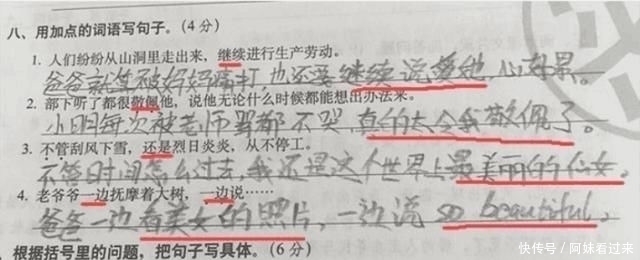 八、用加点的词语写句子。(4分)
1. 人们纷纷从山洞里走出来，继续进行生产劳动。
爸爸就算被妈妈痛打，也还要继续说爱她，心好累。
2. 部下听了都很敬佩他，说他无论什么时候都能想出办法来。
小明每次被老师骂都不哭真的太令我敬佩了。
3. 不管刮风下雪，还是烈日炎炎，从不停工。
不管时间怎么过去，我还是这个世界上最美丽的仙女。
4. 老爷爷一边抚摩着大树，一边说……
爸爸一边看美女的照片，一边说 so beautiful。
根据括号里的问题，把句子写具体。(6分)
快传号／阿妹看过来